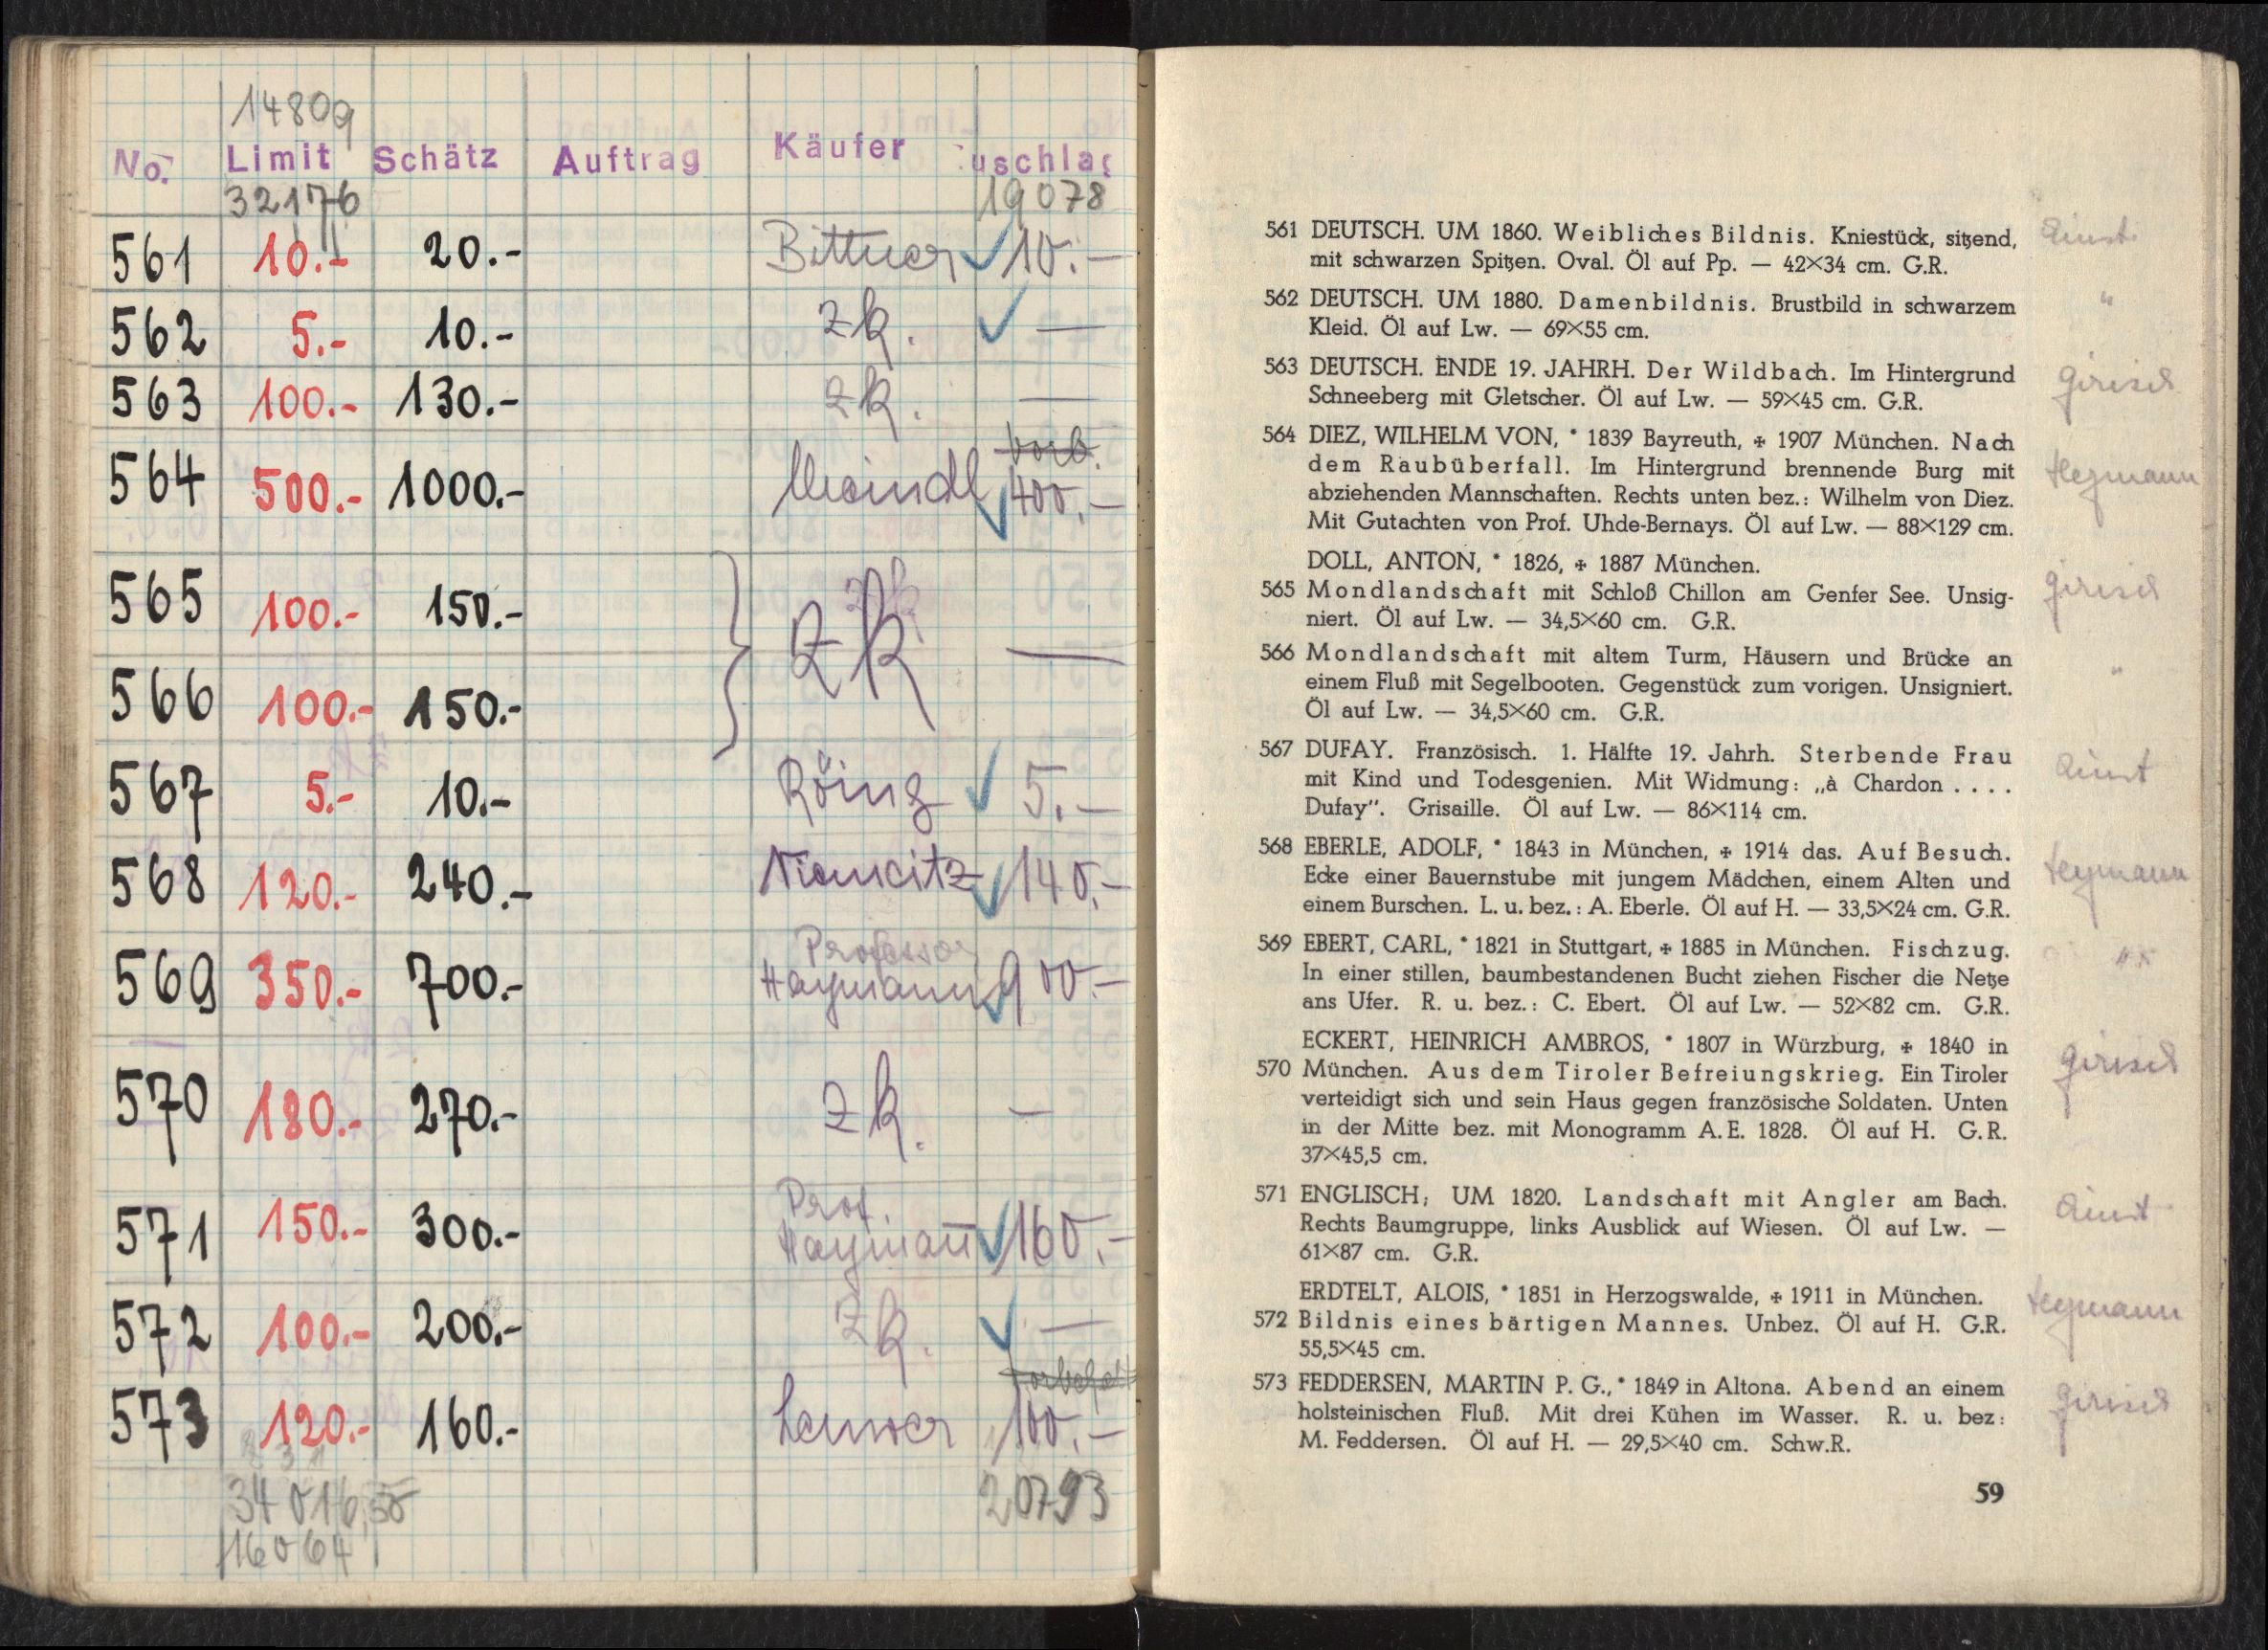 14809
No. Limit Schätz Auftrag Käufer uschlag
32176 19078
561 10.- 20.- Bittner 10.-
562 5.- 10.- zk. —
563 100.- 130.- zk. —
vorb.
564 500.- 1000.- Meindl 400.-
565 100.- 150.- zk
zk —
566 100.- 150.-
567 5.- 10.- Röing 5.-
568 120.- 240.- 140.-
Professor
569 350.- 700.- Heymann 900.-
570 180.- 270.- zk. —
Prof.
571 150.- 300.- Heymann 160.-
572 100.- 200.- zk. —
573 120.- 160.- 100.-
34016,50 20793
16064
561 DEUTSCH. UM 1860. Weibliches Bildnis. Kniestück, sitzend,
mit schwarzen Spitzen. Oval. Öl auf Pp. — 42×34 cm. G.R.
562 DEUTSCH. UM 1880. Damenbildnis. Brustbild in schwarzem "
Kleid. Öl auf Lw. — 69×55 cm.
563 DEUTSCH. ENDE 19. JAHRH. Der Wildbach. Im Hintergrund
Schneeberg mit Gletscher. Öl auf Lw. — 59×45 cm. G.R.
564 DIEZ, WILHELM VON, * 1839 Bayreuth, ✠ 1907 München. Nach
dem Raubüberfall. Im Hintergrund brennende Burg mit Heymann
abziehenden Mannschaften. Rechts unten bez.: Wilhelm von Diez.
Mit Gutachten von Prof. Uhde-Bernays. Öl auf Lw. — 88×129 cm.
DOLL, ANTON, * 1826, ✠ 1887 München.
565 Mondlandschaft mit Schloß Chillon am Genfer See. Unsig-
niert. Öl auf Lw. — 34,5×60 cm. G.R.
566 Mondlandschaft mit altem Turm, Häusern und Brücke an "
einem Fluß mit Segelbooten. Gegenstück zum vorigen. Unsigniert.
Öl auf Lw. — 34,5×60 cm. G.R.
567 DUFAY. Französisch. 1. Hälfte 19. Jahrh. Sterbende Frau
mit Kind und Todesgenien. Mit Widmung: „à Chardon . . . .
Dufay“. Grisaille. Öl auf Lw. — 86×114 cm.
568 EBERLE, ADOLF, * 1843 in München, ✠ 1914 das. Auf Besuch.
Ecke einer Bauernstube mit jungem Mädchen, einem Alten und Heymann
einem Burschen. L. u. bez.: A. Eberle. Öl auf H. — 33,5×24 cm. G.R.
569 EBERT, CARL, * 1821 in Stuttgart, ✠ 1885 in München. Fischzug.
In einer stillen, baumbestandenen Bucht ziehen Fischer die Netze
ans Ufer. R. u. bez.: C. Ebert. Öl auf Lw. — 52×82 cm. G.R.
ECKERT, HEINRICH AMBROS, * 1807 in Würzburg, ✠ 1840 in
570 München. Aus dem Tiroler Befreiungskrieg. Ein Tiroler
verteidigt sich und sein Haus gegen französische Soldaten. Unten
in der Mitte bez. mit Monogramm A. E. 1828. Öl auf H. G. R.
37×45,5 cm.
571 ENGLISCH; UM 1820. Landschaft mit Angler am Bach.
Rechts Baumgruppe, links Ausblick auf Wiesen. Öl auf Lw. —
61×87 cm. G.R.
ERDTELT, ALOIS, * 1851 in Herzogswalde, ✠ 1911 in München. Heymann
572 Bildnis eines bärtigen Mannes. Unbez. Öl auf H. G.R.
55,5×45 cm.
573 FEDDERSEN, MARTIN P. G., * 1849 in Altona. Abend an einem
holsteinischen Fluß. Mit drei Kühen im Wasser. R. u. bez:
M. Feddersen. Öl auf H. — 29,5×40 cm. Schw.R.
59